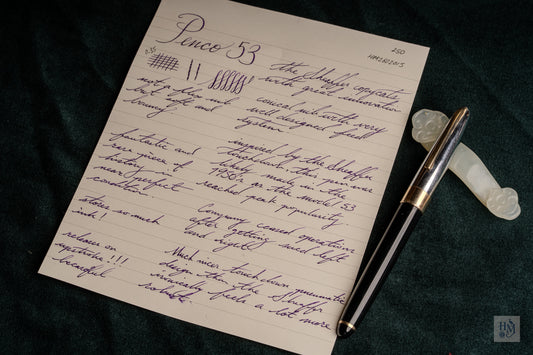 Penco 53
250
HMZR2015
the Sheaffer copycats
with great innovation
not a flow nib
but soft and
bouncy.
conical nib with very
well designed feed
system
fantastic and
rare piece of
history in
near perfect
condition
inspired by the Sheaffer
Touchdown, this pen was
likely made in the
1950's as the model 53
reached peak popularity
stores so much
ink!
Company ceased operations
after getting sued left
and right
releases on
upstroke!!!
beautiful
Much nicer touchdown pneumatic
design than the Sheaffer
ironically feels a lot more
robust.
HM